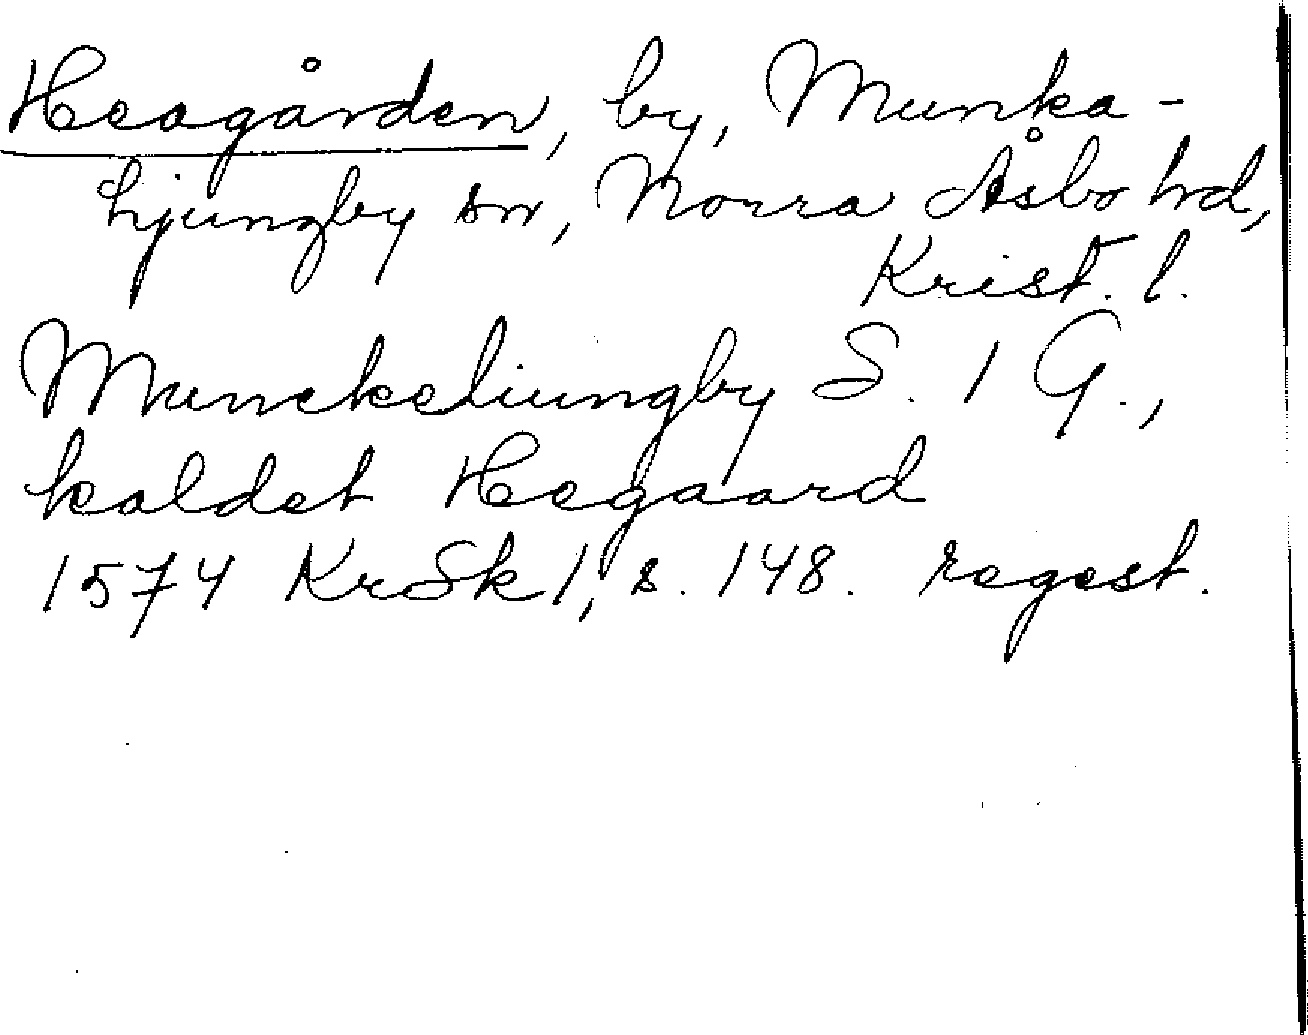 Heagården, by, Munka-
Ljungby sn, Norra Åsbo hd,
Krist. l.
Munckeliungby S. 1 G.,
kaldet Heegaard
1574 KrSk 1, s. 148. regest.